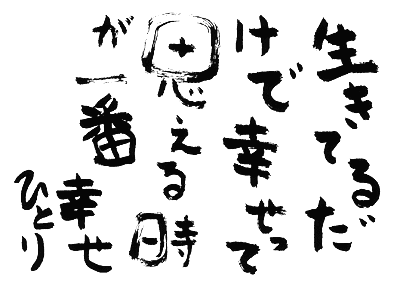 生きてるだ
けで幸せって
思える時
が一番
幸せ
ひとり